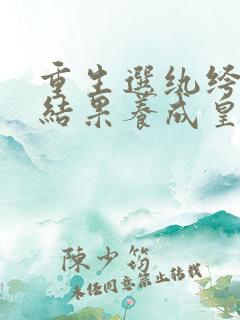 重生選紈絝
結果養成皇
陳少筠
未經同意禁止轉載